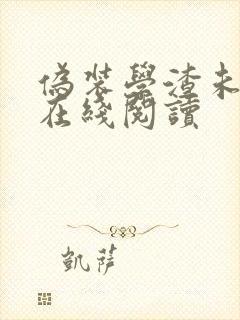 偽裝學渣未
在綫閱讀
凱薩